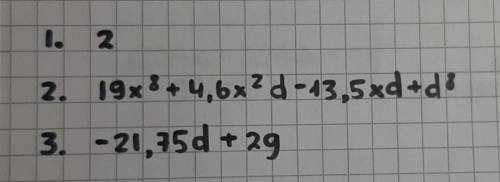 1. 2
2. 19x⁸ + 4,6x² d - 13,5xd + d⁸
3. -21,75d + 2g